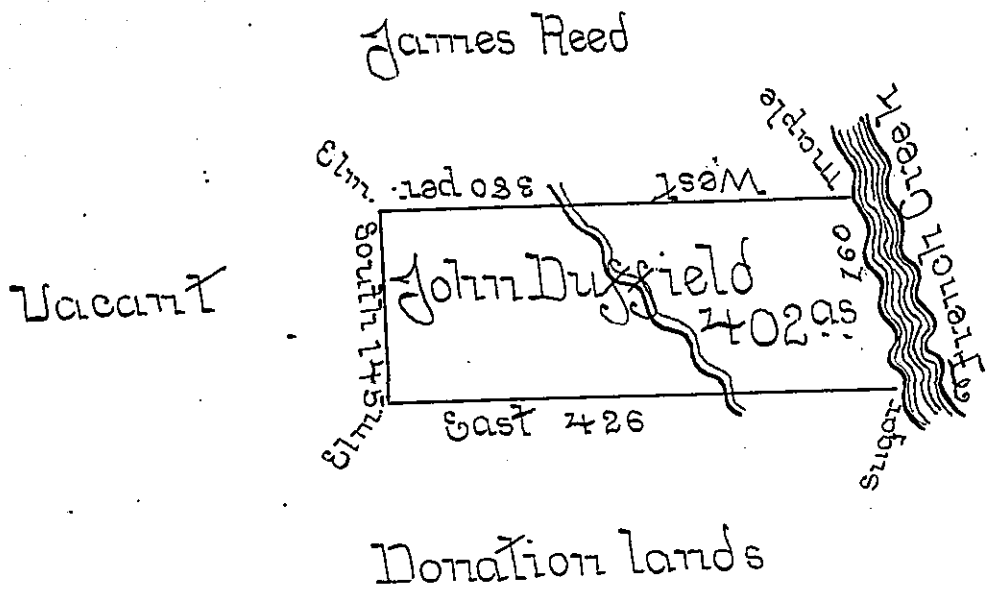 James Reed
Elm.
West 380 per.
Maple
French Creek
South 145
John Duffield
402 as
160
Vacant
Elm
East 426
Sugar
Donation lands